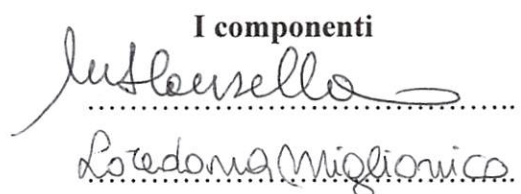 I componenti
Loredana Miglionico